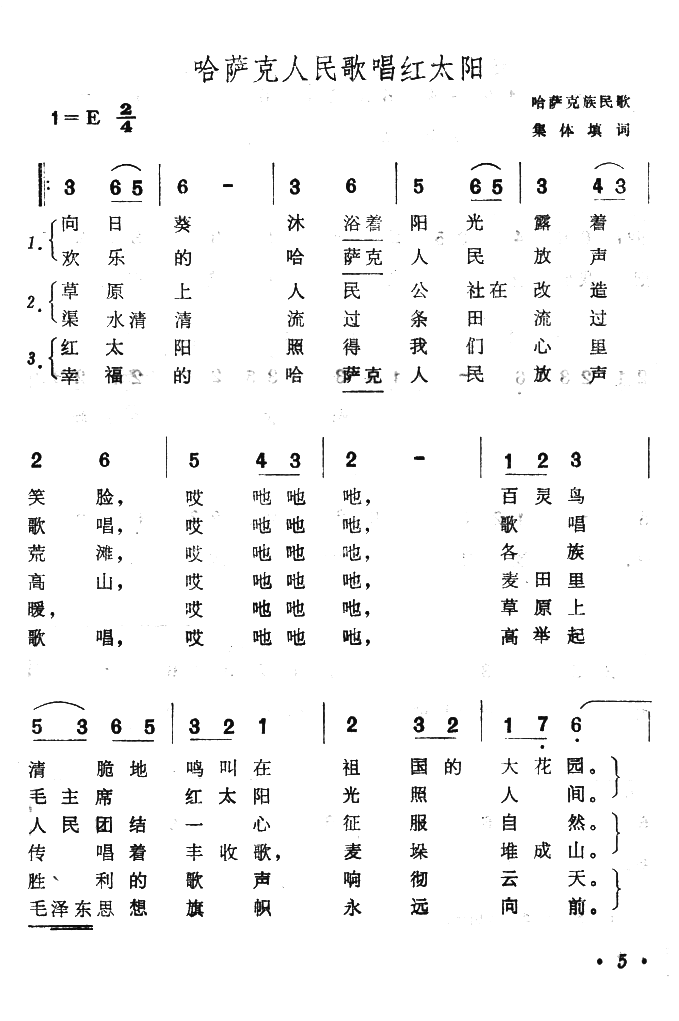 哈萨克人民歌唱红太阳
1=E 2/4
哈萨克族民歌
集体填词
3 6 5 6 - 3 6 5 6 5 3 4 3
1. 向日葵 沐浴着阳光露着
欢乐的 哈萨克人民放声
2. 草原上 人民公社在改造
渠水清清 流过条田流过
3. 红太阳 照得我们心里
幸福的 哈萨克人民放声
2 6 5 4 3 2 - 1 2 3
笑脸, 哎吔吔吔, 百灵鸟
歌唱, 哎吔吔吔, 歌唱
荒滩, 哎吔吔吔, 各族
高山, 哎吔吔吔, 麦田里
暖, 哎吔吔吔, 草原上
歌唱, 哎吔吔吔, 高举起
5 3 6 5 3 2 1 2 3 2 1 7 6
清脆地鸣叫在祖国的大花园。
毛主席红太阳光照人间。
人民团结一心征服自然。
传唱着丰收歌,麦垛堆成山。
胜利的歌声响彻云天。
毛泽东思想旗帜永远向前。
· 5 ·